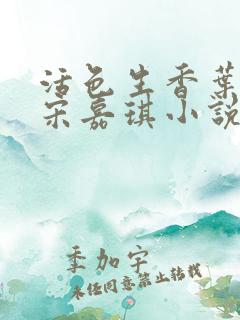 活色生香葉
宋嘉琪小說
季加宇
未经同意禁止转载